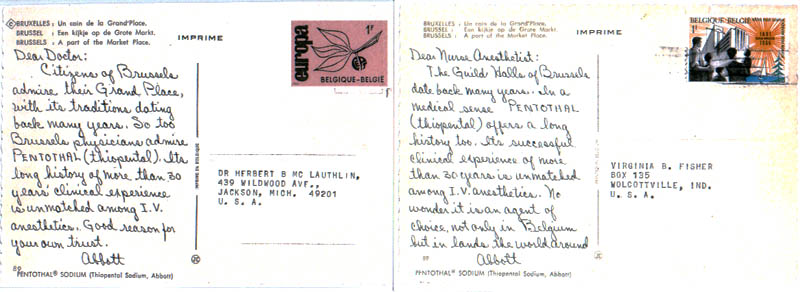 BRUXELLES : Un coin de la Grand'Place.
BRUSSEL : Een kijkje op de Grote Markt.
BRUSSELS : A part of the Market Place.
IMPRIME
Dear Doctor:
Citizens of Brussels
admire their Grand Place,
with its traditions dating
back many years. So too
Brussels physicians admire
PENTOTHAL (thiopental). Its
long history of more than 30
years' clinical experience
is unmatched among I.V.
anesthetics. Good reason for
your own trust.
Abbott
89
PENTOTHAL® SODIUM (Thiopental Sodium, Abbott)
europa
1F
BELGIQUE-BELGIË
DR HERBERT B MC LAUTHLIN,
439 WILDWOOD AVF.,
JACKSON, MICH. 49201
U. S. A.
BRUXELLES : Un coin de la Grand'Place.
BRUSSEL : Een kijkje op de Grote Markt.
BRUSSELS : A part of the Market Place.
IMPRIME
Dear Nurse Anesthetist:
The Guild Halls of Brussels
date back many years. In a
medical sense PENTOTHAL
(thiopental) offers a long
history too. Its successful
clinical experience of more
than 30 years is unmatched
among I.V. anesthetics. No
wonder it is an agent of
choice, not only in Belgium
but in lands the world around
Abbott
89
PENTOTHAL® SODIUM (Thiopental Sodium, Abbott)
BELGIQUE-BELGIË
1F
VIRGINIA B. FISHER
BOX 135
WOLCOTTVILLE, IND.
U. S. A.